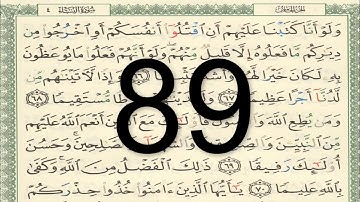 الجزء الخامس ٤ سورة النساء
وَلَوْ أَنَّا كَتَبْنَا عَلَيْهِمْ أَنِ ٱقْتُلُوٓا۟ أَنفُسَكُمْ أَوِ ٱخْرُجُوا۟ مِن
دِيَٰرِكُم مَّا فَعَلُوهُ إِلَّا قَلِيلٌ مِّنْهُمْ وَلَوْ أَنَّهُمْ فَعَلُوا۟ مَا يُوعَظُونَ
بِهِۦ لَكَانَ خَيْرًا لَّهُمْ وَأَشَدَّ ٦٦ وَإِذًا لَّءَاتَيْنَٰهُم مِّن
لَّدُنَّآ أَجْرًا عَظِيمًا ٦٧ مُّسْتَقِيمًا ٦٨
وَمَن يُطِعِ ٱللَّهَ وَٱلرَّسُولَ مَعَ ٱلَّذِينَ أَنْعَمَ ٱللَّهُ عَلَيْهِم
مِّنَ ٱلنَّبِيِّـۧنَ وَٱلصَّٰلِحِينَ وَحَسُنَ
أُو۟لَٰٓئِكَ رَفِيقًا ٦٩ ذَٰلِكَ ٱلْفَضْلُ مِنَ ٱللَّهِ وَكَفَىٰ
بِٱللَّهِ عَلِيمًا ٧٠ يَٰٓأَيُّهَا ٱلَّذِينَ ءَامَنُوا۟ خُذُوا۟ حِذْرَكُمْ
89